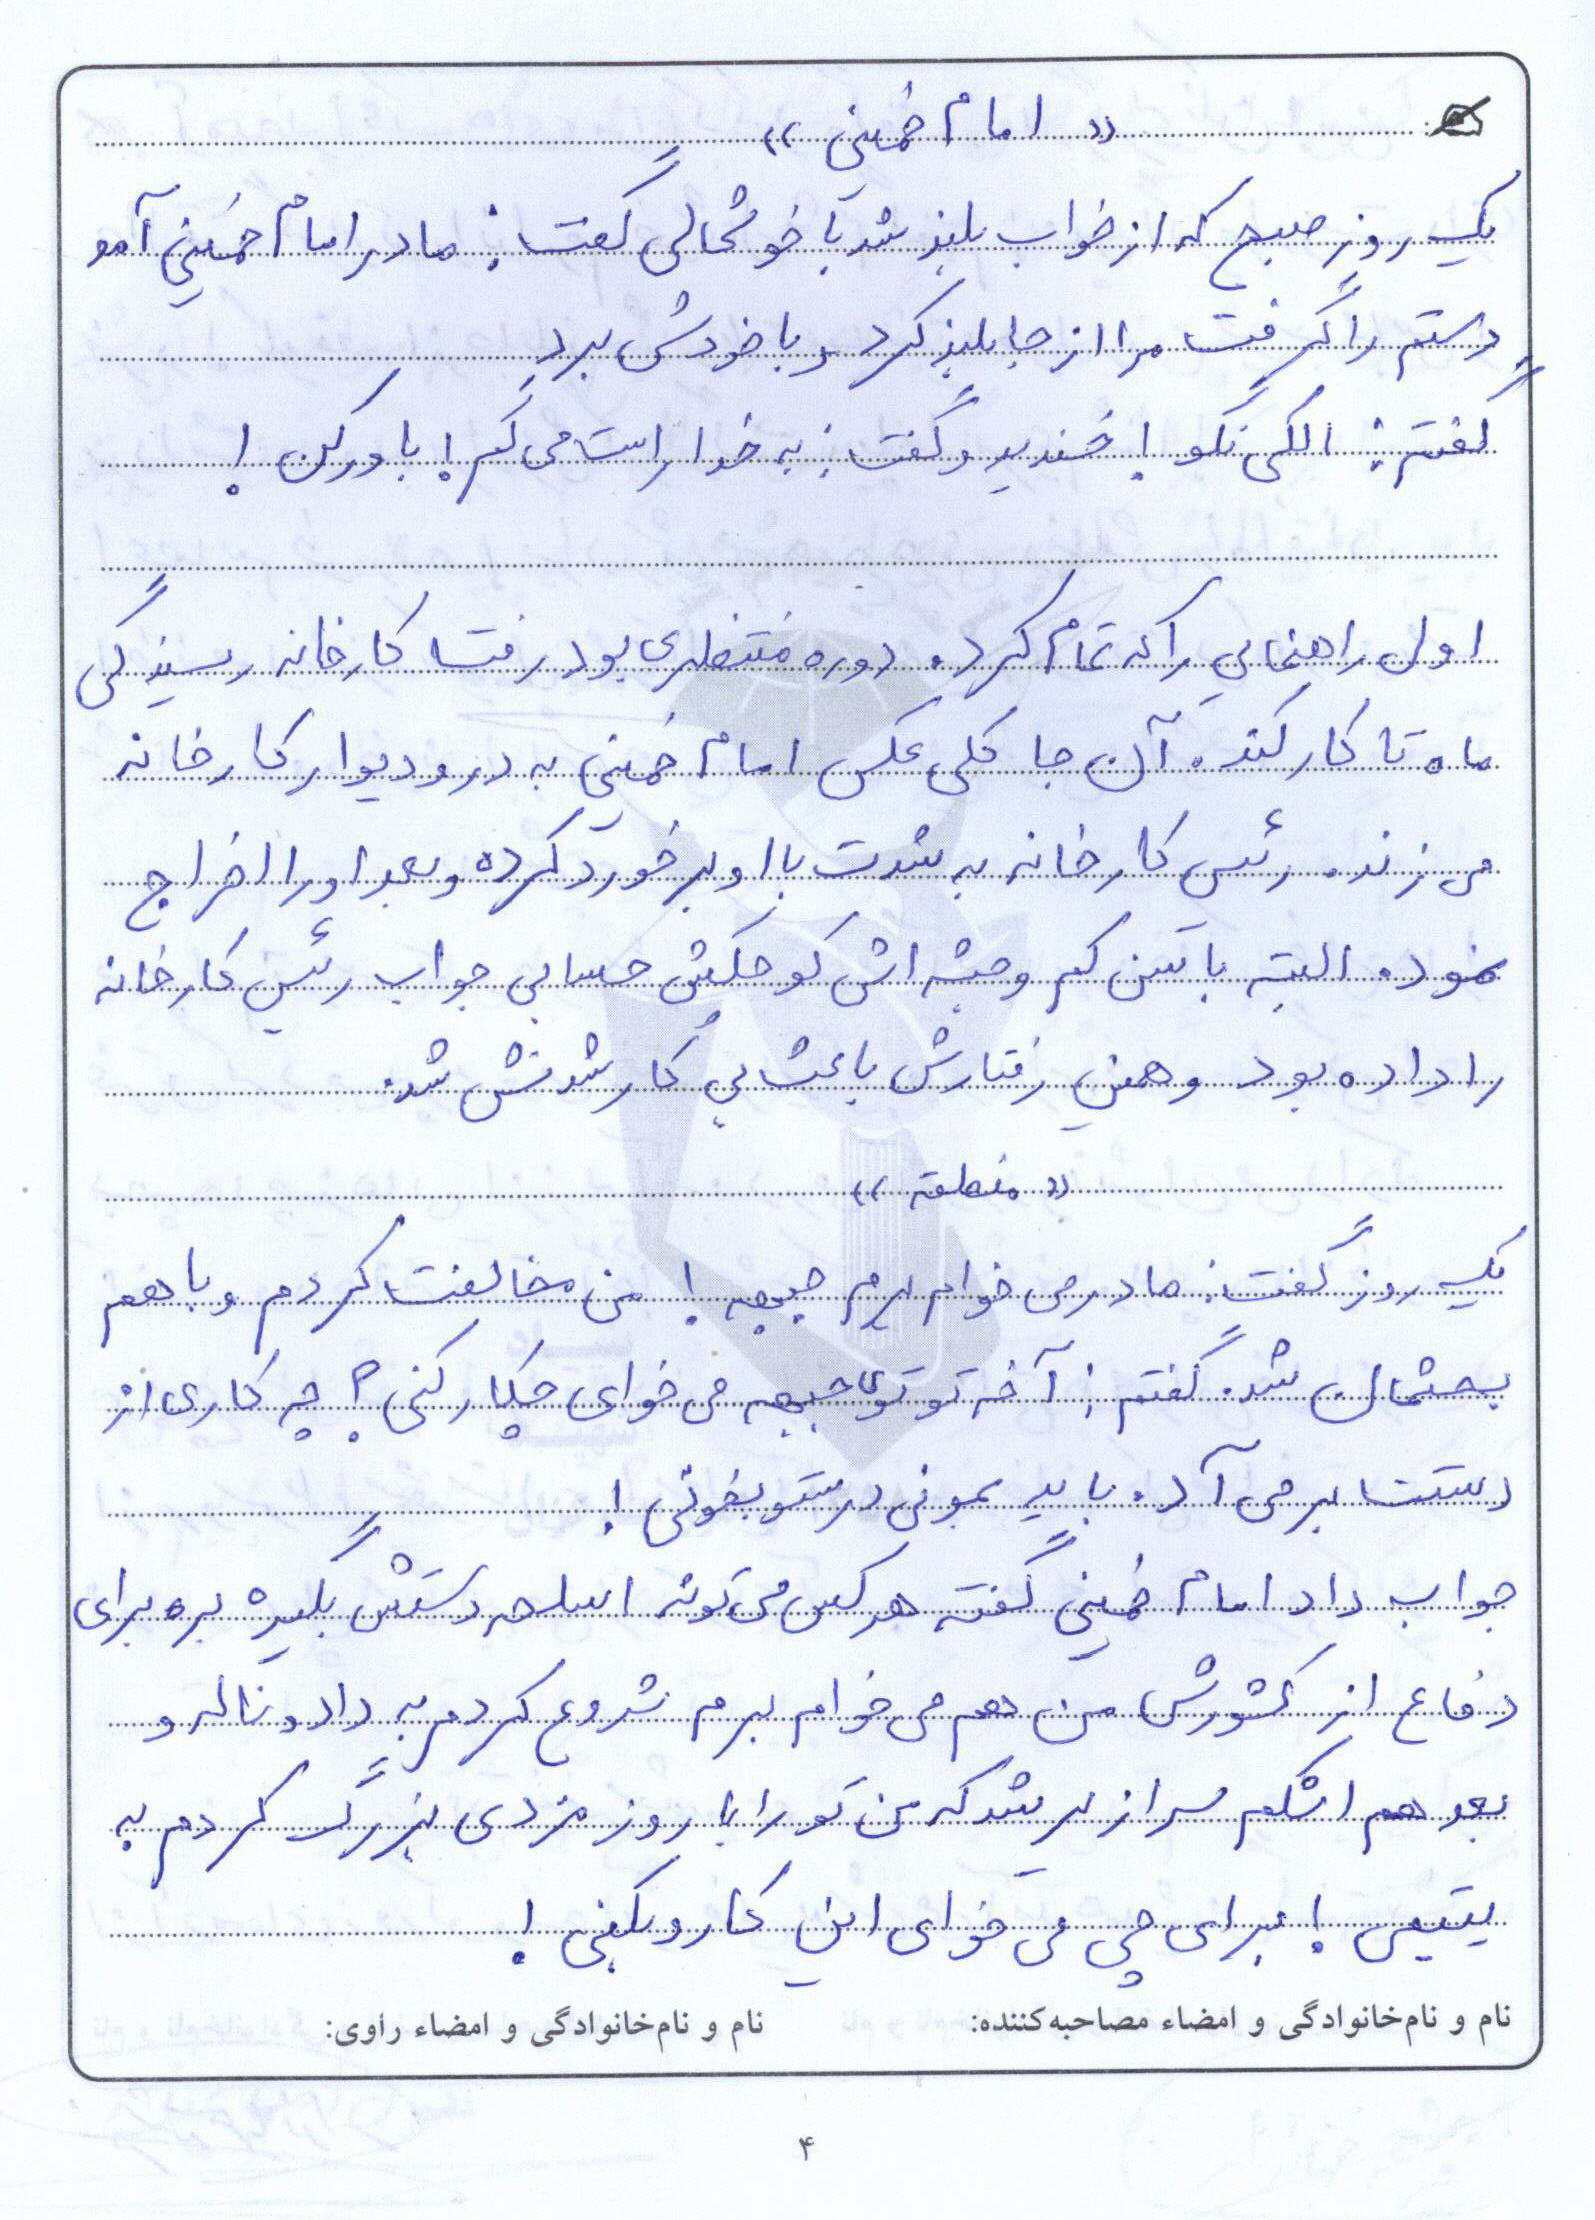 « امام خمینی »
یک روز صبح که از خواب بلند شد با خوشحالی گفت: مادر امام خمینی آمد
دستم را گرفت مرا از جا بلند کرد و با خودش برد
گفتم: الکی نگو! خندید و گفت: به خدا راست می گم! باور کن!
اول راهنمایی را که تمام کرد. دوره منتظری بود رفت کارخانه ریسندگی
ماه تا کار کند. آن جا کلی عکس امام خمینی به در و دیوار کارخانه
می زند. رئیس کارخانه به شدت با او برخورد کرده و بعد او را اخراج
نمود. البته با سن کم و جثه اش کوچکش حسابی جواب رئیس کارخانه
را داده بود و همین رفتارش باعث بی کار شدنش شد.
« منطقه »
یک روز گفت: مادر می خوام برم جبهه! من مخالفت کردم و با هم
بحثمان شد. گفتم: آخه تو توی جبهه می خوای چیکار کنی؟ چه کاری از
دستت بر می آد. باید بمونی درستو بخونی!
جواب داد امام خمینی گفته هر کس می تونه اسلحه دستش بگیره بره برای
دفاع از کشورش من هم می خوام برم شروع کردم به داد و ناله و
بعد هم اشکم سرازیر شد که من تو را با روز مزدی بزرگ کردم به
یتیمی! برای چی می خوای این کار و بکنی!
نام و نام‌خانوادگی و امضاء مصاحبه‌کننده: نام و نام‌خانوادگی و امضاء راوی:
۴